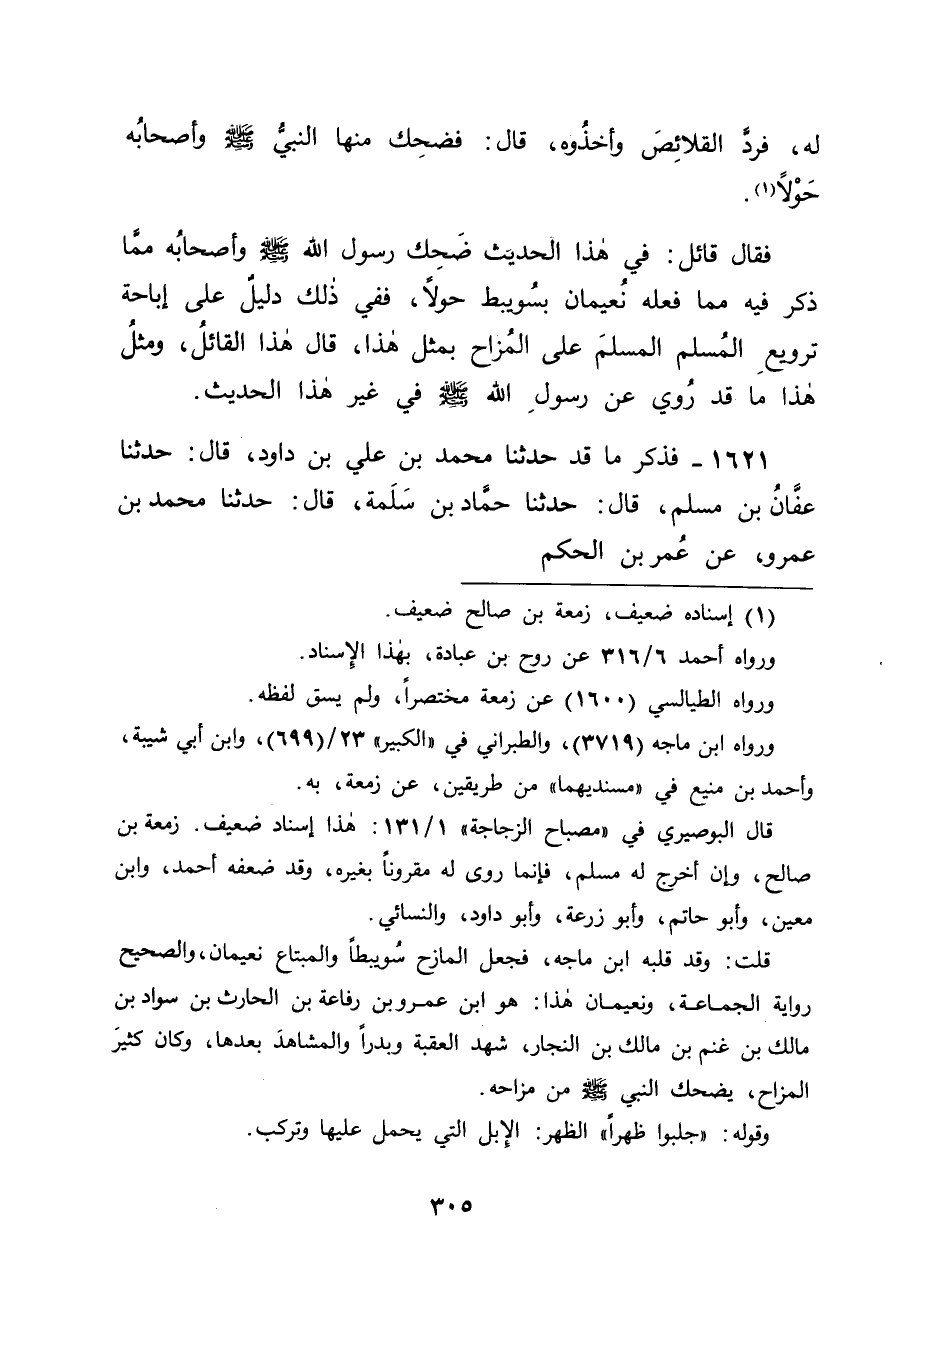 له، فردَّ القلائِصَ وأخذُوه، قال: فضحِك منها النبيُّ ﷺ وأصحابُه
حَوْلاً(١).
فقال قائل: في هٰذا الحديث ضَحِك رسول الله ﷺ وأصحابُه ممَّا
ذكر فيه مما فعله نُعيمان بسُويبط حولاً، ففي ذٰلك دليلٌ على إباحة
ترويعِ المُسلم المسلمَ على المُزاح بمثل هٰذا، قال هٰذا القائلُ، ومثلُ
هٰذا ما قد رُوي عن رسولِ الله ﷺ في غير هٰذا الحديث.
١٦٢١ ـ فذكر ما قد حدثنا محمد بن علي بن داود، قال: حدثنا
عفَّانُ بن مسلم، قال: حدثنا حمَّاد بن سَلَمة، قال: حدثنا محمد بن
عمرو، عن عُمر بن الحكم
(١) إسناده ضعيف، زمعة بن صالح ضعيف.
ورواه أحمد ٣١٦/٦ عن روح بن عبادة، بهٰذا الإسناد.
ورواه الطيالسي (١٦٠٠) عن زمعة مختصراً، ولم يسق لفظه.
ورواه ابن ماجه (٣٧١٩)، والطبراني في «الكبير» ٢٣/(٦٩٩)، وابن أبي شيبة،
وأحمد بن منيع في «مسنديهما» من طريقين، عن زمعة، به.
قال البوصيري في «مصباح الزجاجة» ١٣١/١: هٰذا إسناد ضعيف. زمعة بن
صالح، وإن أخرج له مسلم، فإنما روى له مقروناً بغيره، وقد ضعفه أحمد، وابن
معين، وأبو حاتم، وأبو زرعة، وأبو داود، والنسائي.
قلت: وقد قلبه ابن ماجه، فجعل المازح سُويبطاً والمبتاع نعيمان، والصحيح
رواية الجماعة، ونعيمان هٰذا: هو ابن عمرو بن رفاعة بن الحارث بن سواد بن
مالك بن غنم بن مالك بن النجار، شهد العقبة وبدراً والمشاهدَ بعدها، وكان كثيرَ
المزاح، يضحك النبي ﷺ من مزاحه.
وقوله: «جلبوا ظهراً» الظهر: الإبل التي يحمل عليها وتركب.
٣٠٥